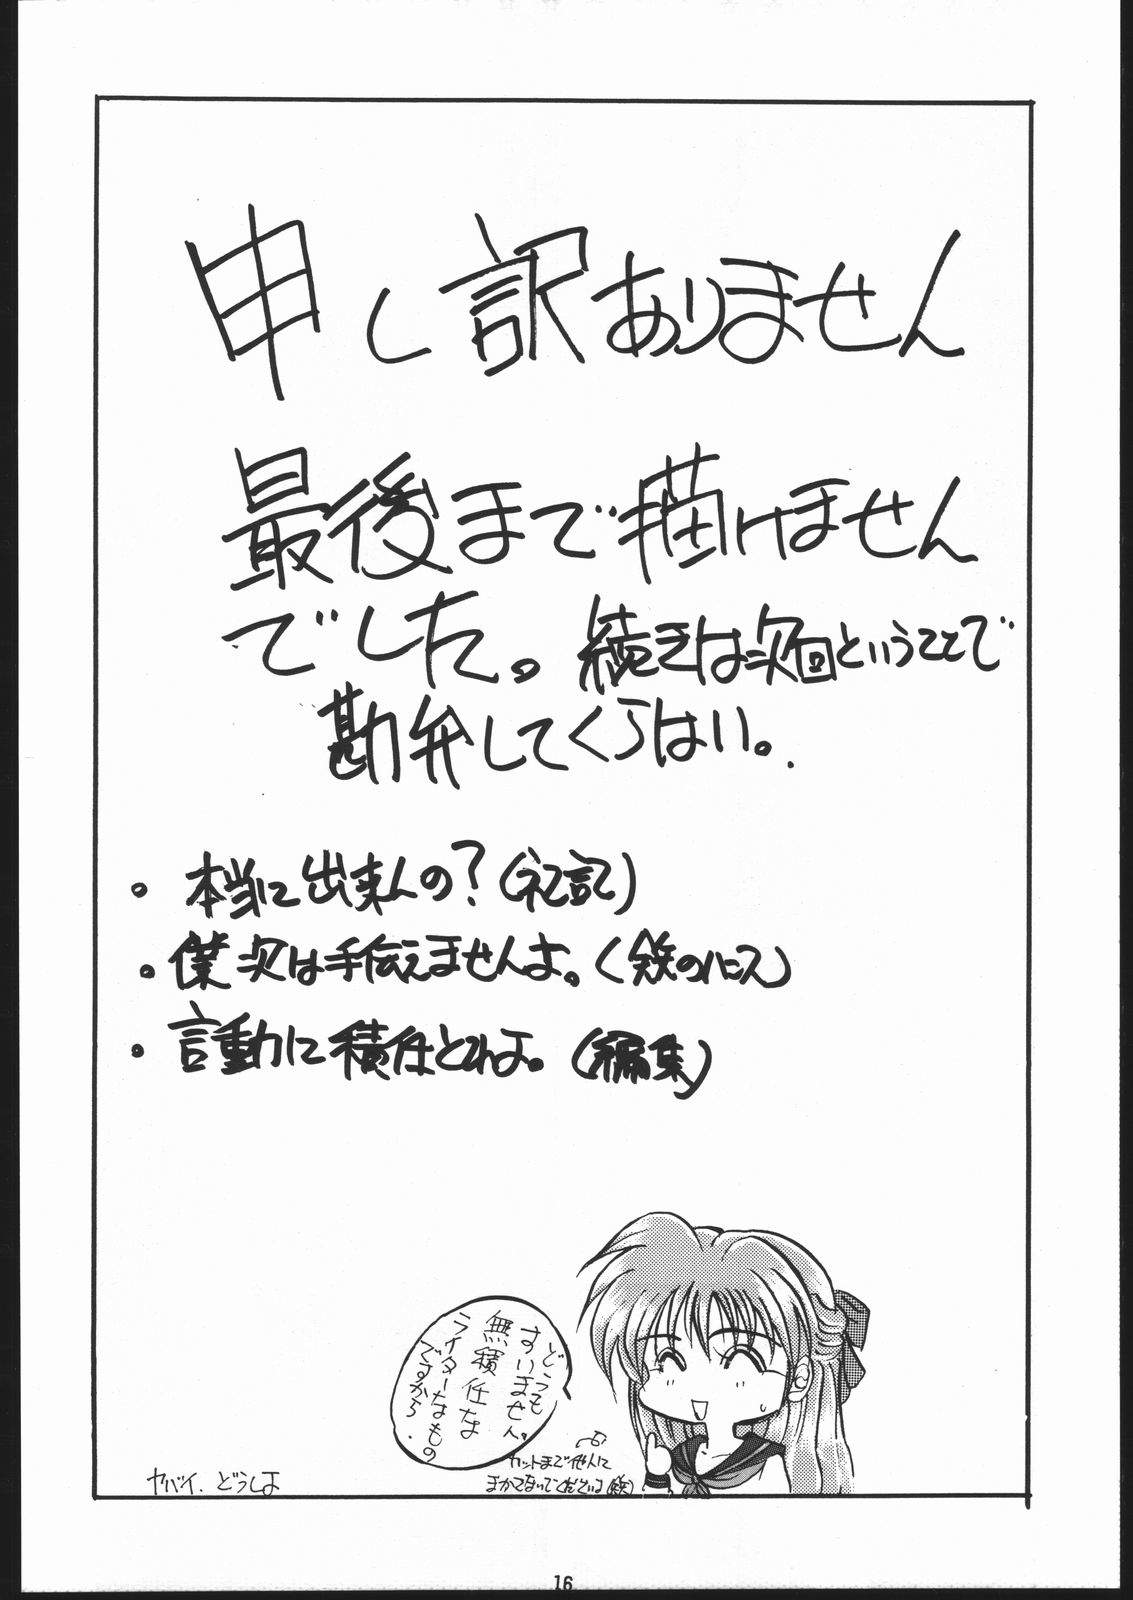 申し訳ありません
最後まで描けません
でした。続きは次回ということで
勘弁してくらはい。
・本当に出来んの?(禄記)
・僕次は手伝えませんよ。(鉄のハニス)
・言動に積任とれよ。(編集)
どうも
すいません。
無積任な
ライターなもの
ですから.
カットまで他人に
まかてないでください(鉄)
ヤバイ.どうしよ
16